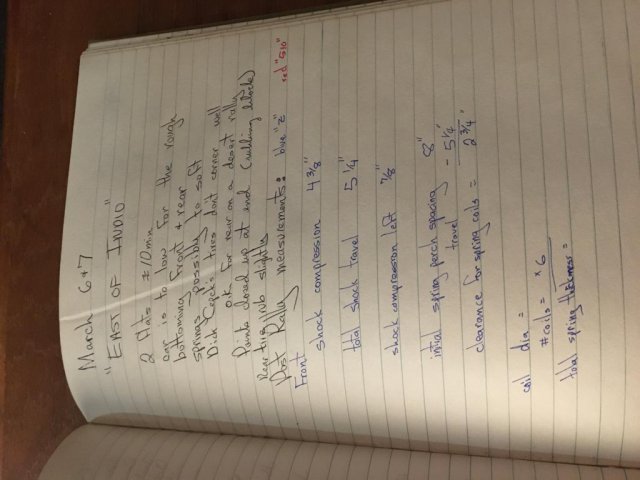 March 6+7
"EAST OF INDIO"
2 flats ≠/10min
car is to low for the rough
bottoming front & rear
springs possibly to soft
Dick Cepeks tires don't corner well
o.k. for rear on a desert rally
Points closed up at end (rubbing block)
Rear tire rub slightly
Post Rally measurements: blue "Z" red "510"
Front
shock compression 4 3/8"
total shock travel 5 1/4"
shock compression left 7/8"
intial spring perch spacing 8"
travel - 5 1/4"
clearance for spring coils = 2 3/4"
coil dia =
# coils = × 6
total spring thickness =